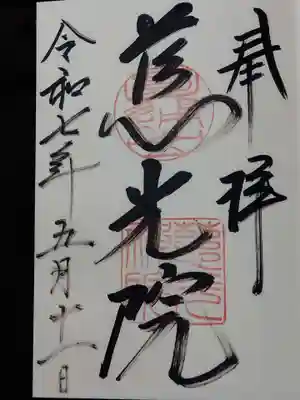 奉拝
慈光院
令和七年五月十一日